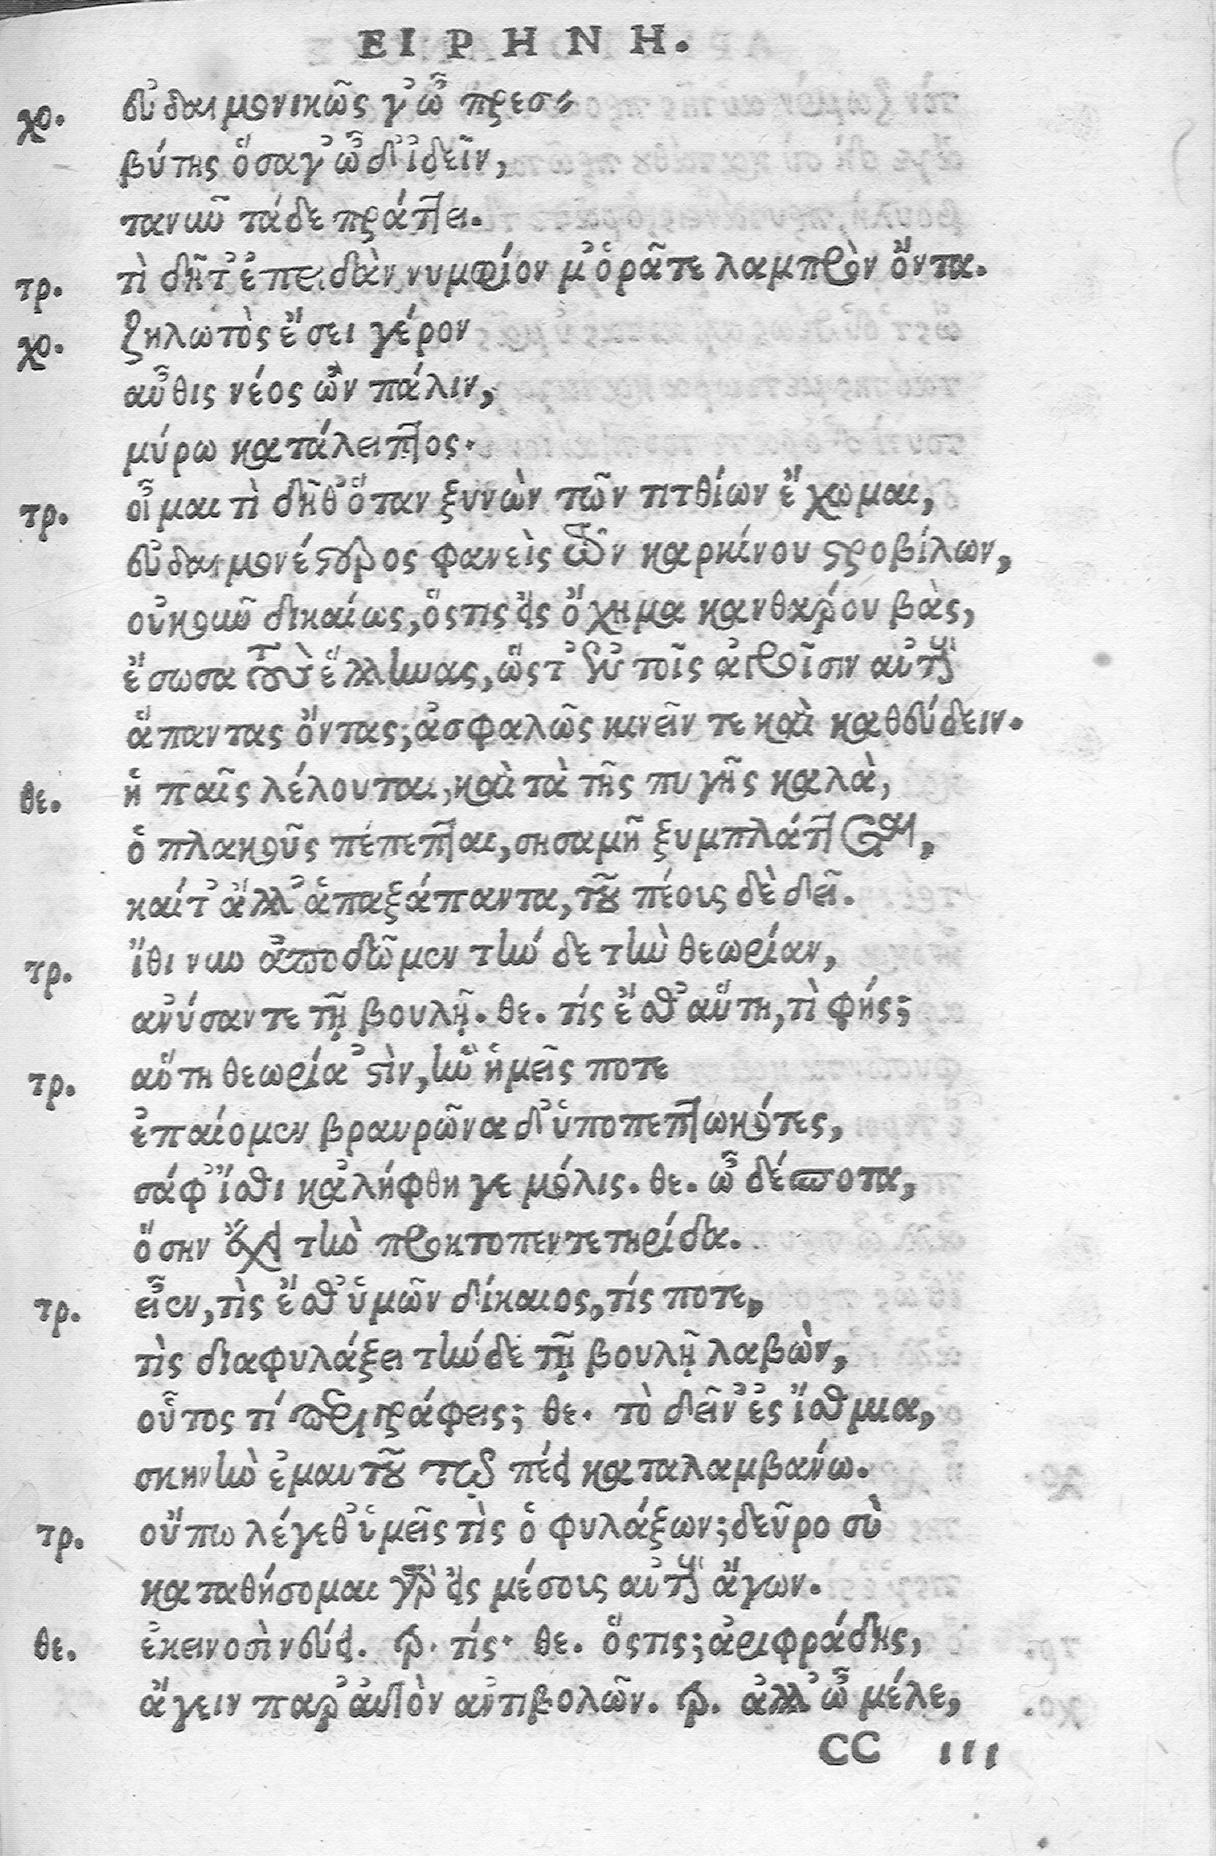 ΕΙΡΗΝΗ.
χο. εὐδαιμονικῶς γ' ὦ πρεσ-
βύτης ὅσα γ' ὧδ' ἰδεῖν,
τανῦν τάδε πράττει.
τρ. τὶ δῆτ' ἐπειδὰν νυμφίον μ' ὁρᾶτε λαμπρὸν ὄντα.
χο. ζηλωτὸς ἔσει γέρον
αὖθις νέος ὢν πάλιν,
μύρω κατάλειπτος.
τρ. οἶμαι τὶ δῆθ' ὅταν ξυνὼν τῶν τιτθίων ἔχωμαι,
εὐδαιμονέστερος φανεὶς τῶν καρκίνου στροβίλων,
οὐκοῦν δικαίως, ὅστις εἰς ὄχημα κανθάρου βὰς,
ἔσωσα τοὺς ἕλληνας, ὥστ' ἐν τοῖς ἀγροῖσιν αὐτοὺς
ἅπαντας ὄντας; ἀσφαλῶς κινεῖν τε καὶ καθεύδειν.
θε. ἡ παῖς λέλουται, καὶ τὰ τῆς πυγῆς καλὰ,
ὁ πλακοῦς πέπεπται, σησαμῆ ξυμπλάττεται,
καί τ' ἄλλ' ἁπαξάπαντα, τοῦ πέοις δὲ δεῖ.
τρ. ἴθι νυν ἀποδῶμεν τήν δε τὴν θεωρίαν,
ανύσαντε τῇ βουλῇ. θε. τίς ἔσθ' αὕτη, τὶ φής;
τρ. αὕτη θεωρία 'στὶν, ἣν ἡμεῖς ποτε
ἐπαίομεν βραυρῶνα δ' ὑποπεπτωκότες,
σάφ' ἴσθι κἀλήφθη γε μόλις. θε. ὦ δέσποτα,
ὅσην ἔχει τὴν πρωκτοπεντετηρίδα.
τρ. εἶεν, τὶς ἔσθ' ὑμῶν δίκαιος, τίς ποτε,
τὶς διαφυλάξει τήνδε τῇ βουλῇ λαβὼν,
οὗτος τί περιγράφεις; θε. τὸ δεῖν' ἐς ἴσθμια,
σκηνὴν ἐμαυτοῦ τῷ πέει καταλαμβανω.
τρ. οὔπω λέγεθ' ὑμεῖς τὶς ὁ φυλάξων; δεῦρο σὺ
καταθήσομαι γὰρ εἰς μέσοις αὐτὸς ἄγων.
θε. ἐκεινοσὶ νεύει. τρ. τίς. θε. ὅστις; ἀριφράδης,
ἄγειν παρ' αὑτὸν αντιβολῶν. τρ. ἀλλ' ὦ μέλε,
CC III